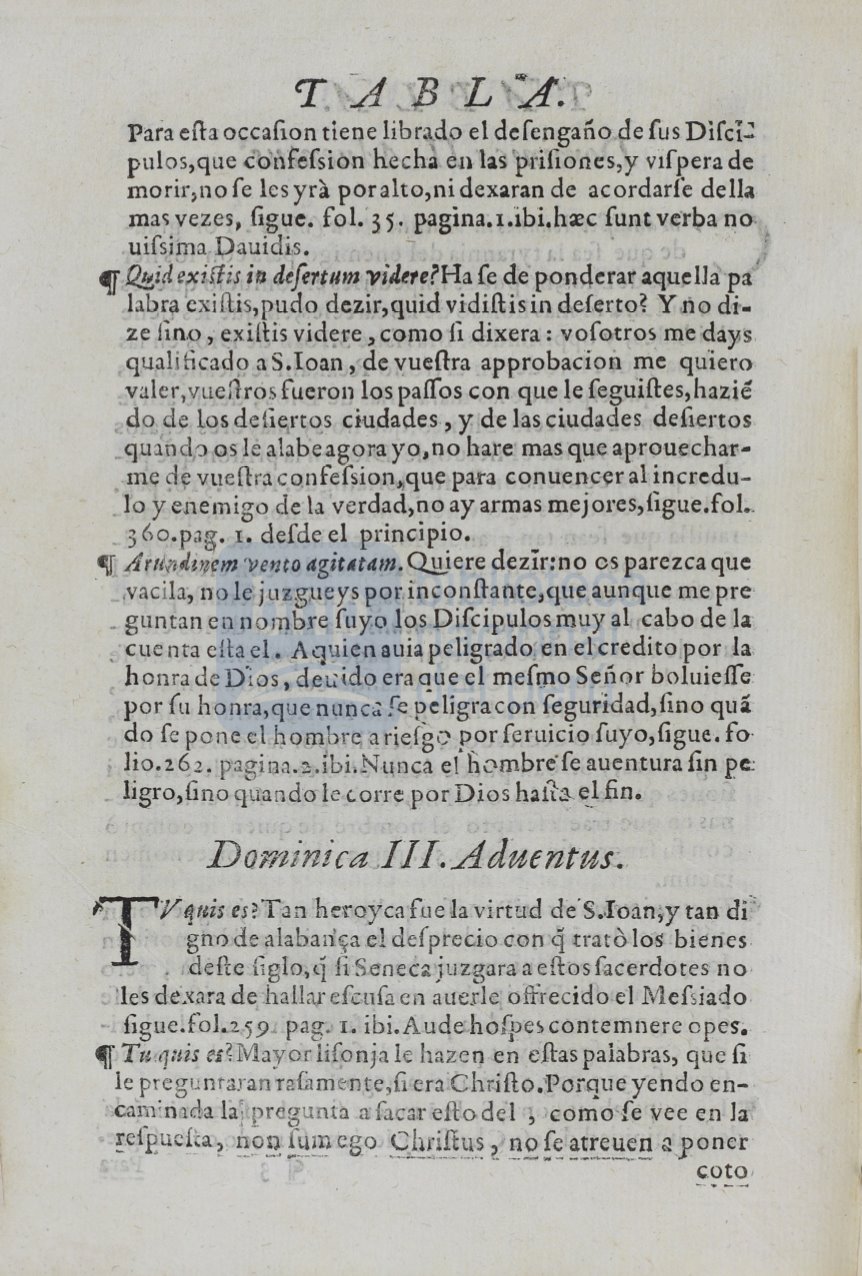 TABLA.
Para esta occasion tiene librado el desengaño de sus Disci-
pulos, que confession hecha en las prisiones, y vispera de
morir, no se les yrà por alto, ni dexaran de acordarse della
mas vezes, sigue. fol. 35. pagina. 1. ibi. hæc sunt verba no
uissima Dauidis.
¶ Quid existis in desertum videre? Ha se de ponderar aquella pa
labra existis, pudo dezir, quid vidistis in deserto? Y no di-
ze sino, existis videre, como si dixera: vosotros me days
qualificado a S. Ioan, de vuestra approbacion me quiero
valer, vuestros fueron los passos con que le seguistes, haziẽ
do de los desiertos ciudades, y de las ciudades desiertos
quando os le alabe agora yo, no hare mas que aprouechar-
me de vuestra confession, que para conuencer al incredu-
lo y enemigo de la verdad, no ay armas mejores, sigue. fol.
360. pag. 1. desde el principio.
¶ Arundinem vento agitatam. Quiere dezir: no os parezca que
vacila, no le juzgueys por inconstante, que aunque me pre
guntan en nombre suyo los Discipulos muy al cabo de la
cuenta esta el. A quien auia peligrado en el credito por la
honra de Dios, deuido era que el mesmo Señor boluiesse
por su honra, que nunca se peligra con seguridad, sino quã
do se pone el hombre a riesgo por seruicio suyo, sigue. fo
lio. 262. pagina. 2. ibi. Nunca el hombre se auentura sin pe
ligro, sino quando le corre por Dios hasta el fin.
Dominica III. Aduentus.
TV quis es? Tan heroyca fue la virtud de S. Ioan, y tan di
gno de alabança el desprecio con q̃ tratò los bienes
deste siglo, q̃ si Seneca juzgara a estos sacerdotes no
les dexara de hallar escusa en auerle offrecido el Messiado
sigue. fol. 259. pag. 1. ibi. Aude hospes contemnere opes.
¶ Tu quis es? Mayor lisonja le hazen en estas palabras, que si
le preguntaran rasamente, si era Christo. Porque yendo en-
caminada la pregunta a sacar esto del, como se vee en la
respuesta, non sum ego Christus, no se atreuen a poner
coto